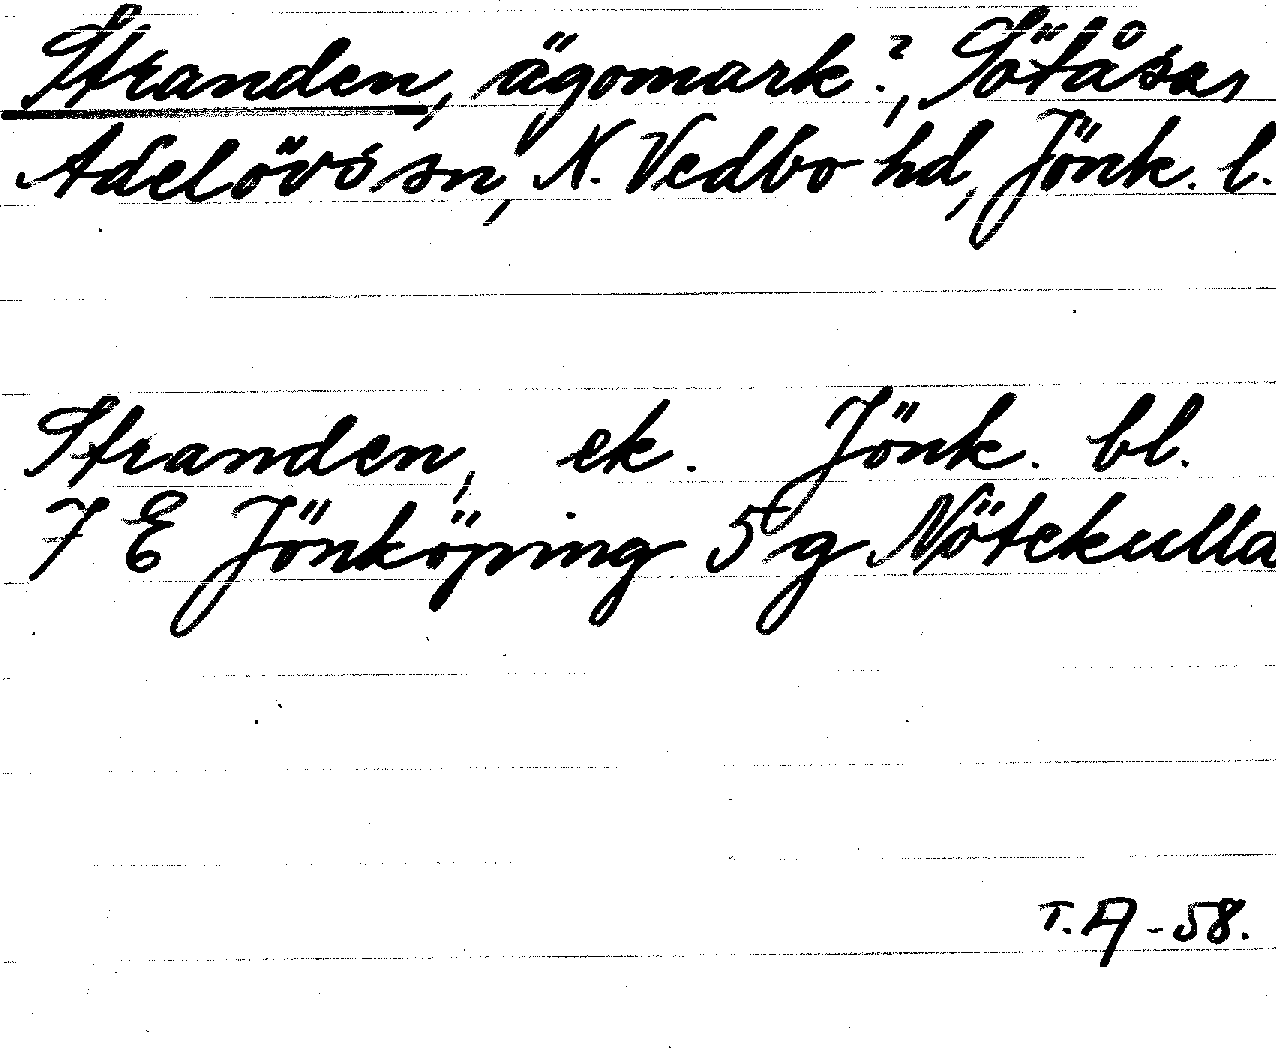 Stranden, ägomark?, Sötåsa,
Adelövs sn, N. Vedbo hd, Jönk. l.
Stranden, ek. Jönk. bl.
7 E Jönköping 5 g Nötekulla
T.A -58.